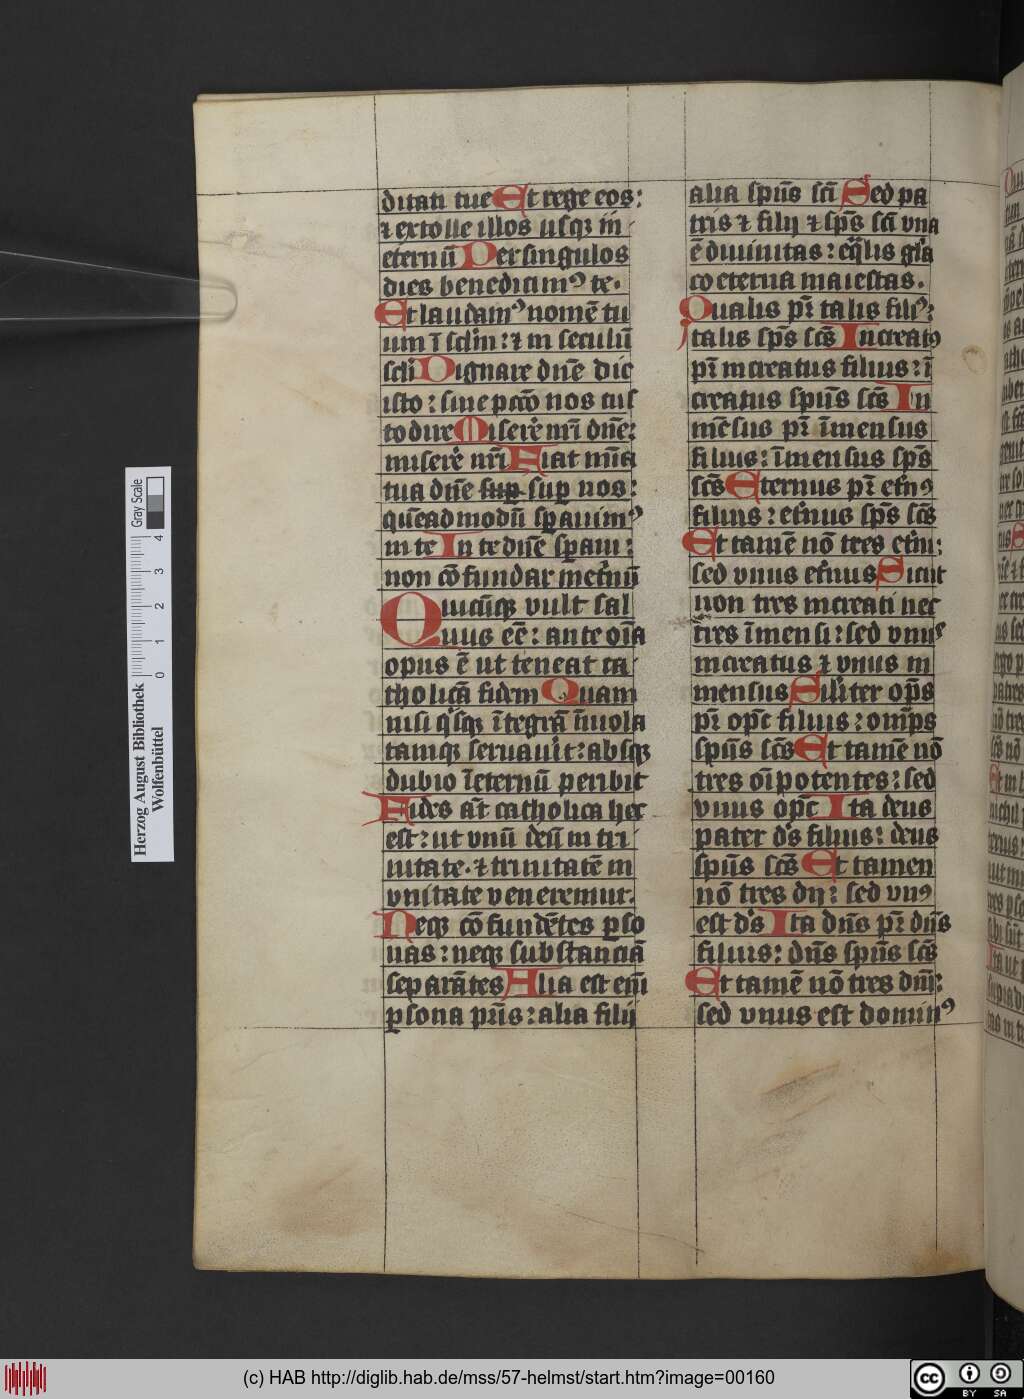 ditati tue Et rege eos:
⁊ extolle illos usqꝫ in
eternū Per singulos
dies benedicimꝰ te.
Et laudamꝰ nomē tu
um ī sclm̄: ⁊ in seculū
scli Dignare dn̄e die
isto: sine pccō nos cus
todire Miserē nr̄i dn̄e:
miserē nr̄i Fiat mīa
tua dn̄e sup sup nos:
quēadmodū sperauimꝰ
in te In te dn̄e speraui:
non cōfundar inet̄nū
Quicūqꝫ vult sal
uus eē: ante oīa
opus ē ut teneat ca
tholicā fidem Quam
nisi qisqꝫ ītegrā īuiola
tamqꝫ seruauit: absqꝫ
dubio īeternū peribit
Fides aūt catholica hec
est: ut vnū deū in tri
nitate. ⁊ trinitatē in
vnitate veneremur.
Neqꝫ cōfundētes ꝑso
nas: neqꝫ substanciā
separātes Alia est em̄
ꝑsona pr̄is: alia filij
alia spūs sc̄i Sed pa
tris ⁊ filij ⁊ sp̄s sc̄i vna
ē diuinitas: eq̄lis gl̄a
coeterna maiestas.
Qualis pr̄ talis filiꝰ:
talis sp̄s sc̄s Increatꝰ
pr̄ increatus filius: ī
creatus spūs sc̄s In
mēsus pr̄ īmensus
filius: īmensus sp̄s
sc̄s Eternus pr̄ et̄nꝰ
filius: et̄nus sp̄s sc̄s
Et tamē nō tres et̄ni:
sed vnus et̄nus Sicut
non tres increati nec
tres īmensi: sed vnus
increatus ⁊ vnus in
mensus Silīter op̄s
pr̄ op̄s filius: omīps
spūs sc̄s Et tamē nō
tres oīpotentes: sed
vnus op̄s Ita deus
pater ds̄ filius: deus
spūs sc̄s Et tamen
nō tres dij: sed vnꝰ
est ds̄ Ita dn̄s pr̄ dn̄s
filius: dn̄s spūs sc̄s
Et tamē nō tres dn̄i:
sed vnus est dominꝰ
Herzog August Bibliothek
Wolfenbüttel
0 1 2 3 4
Gray Scale
(c) HAB http://diglib.hab.de/mss/57-helmst/start.htm?image=00160
cc BY SA